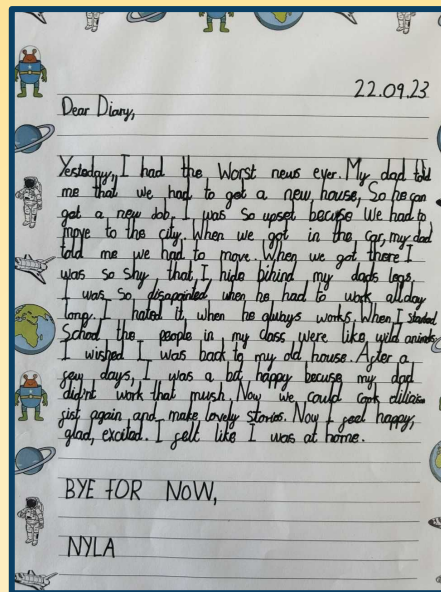 22.09.23
Dear Diary,
Yesteday, I had the Worst news ever. My dad told
me that we had to get a new house, So he can
get a new Job. I was So upset becuse We had to
move to the city. When we got in the car, my dad
told me we had to move. When we got there I
was so shy that I hide bihind my dads legs.
I was So disapointed when he had to work all day
long. I hated it, when he works. When I started
School the people in my class were like wild animals
I wished I was back to my old house. After a
few days, I was a bit happy becuse my dad
did'nt work that mush. Now we could cook
jist again and make lovely stories. Now I feel happy,
glad, excited. I felt like I was at home.
BYE FOR NOW,
NYLA